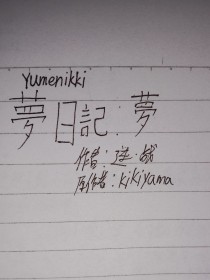 Yumenikki
夢日記:夢
作者:
原作者:kikiyama